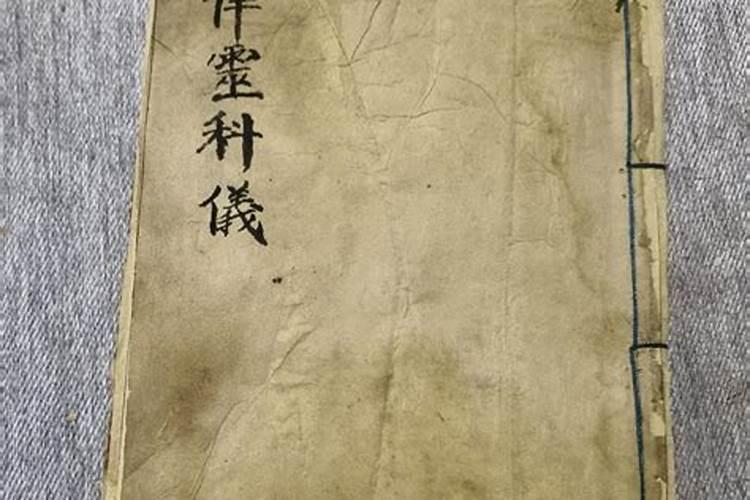 霊科儀